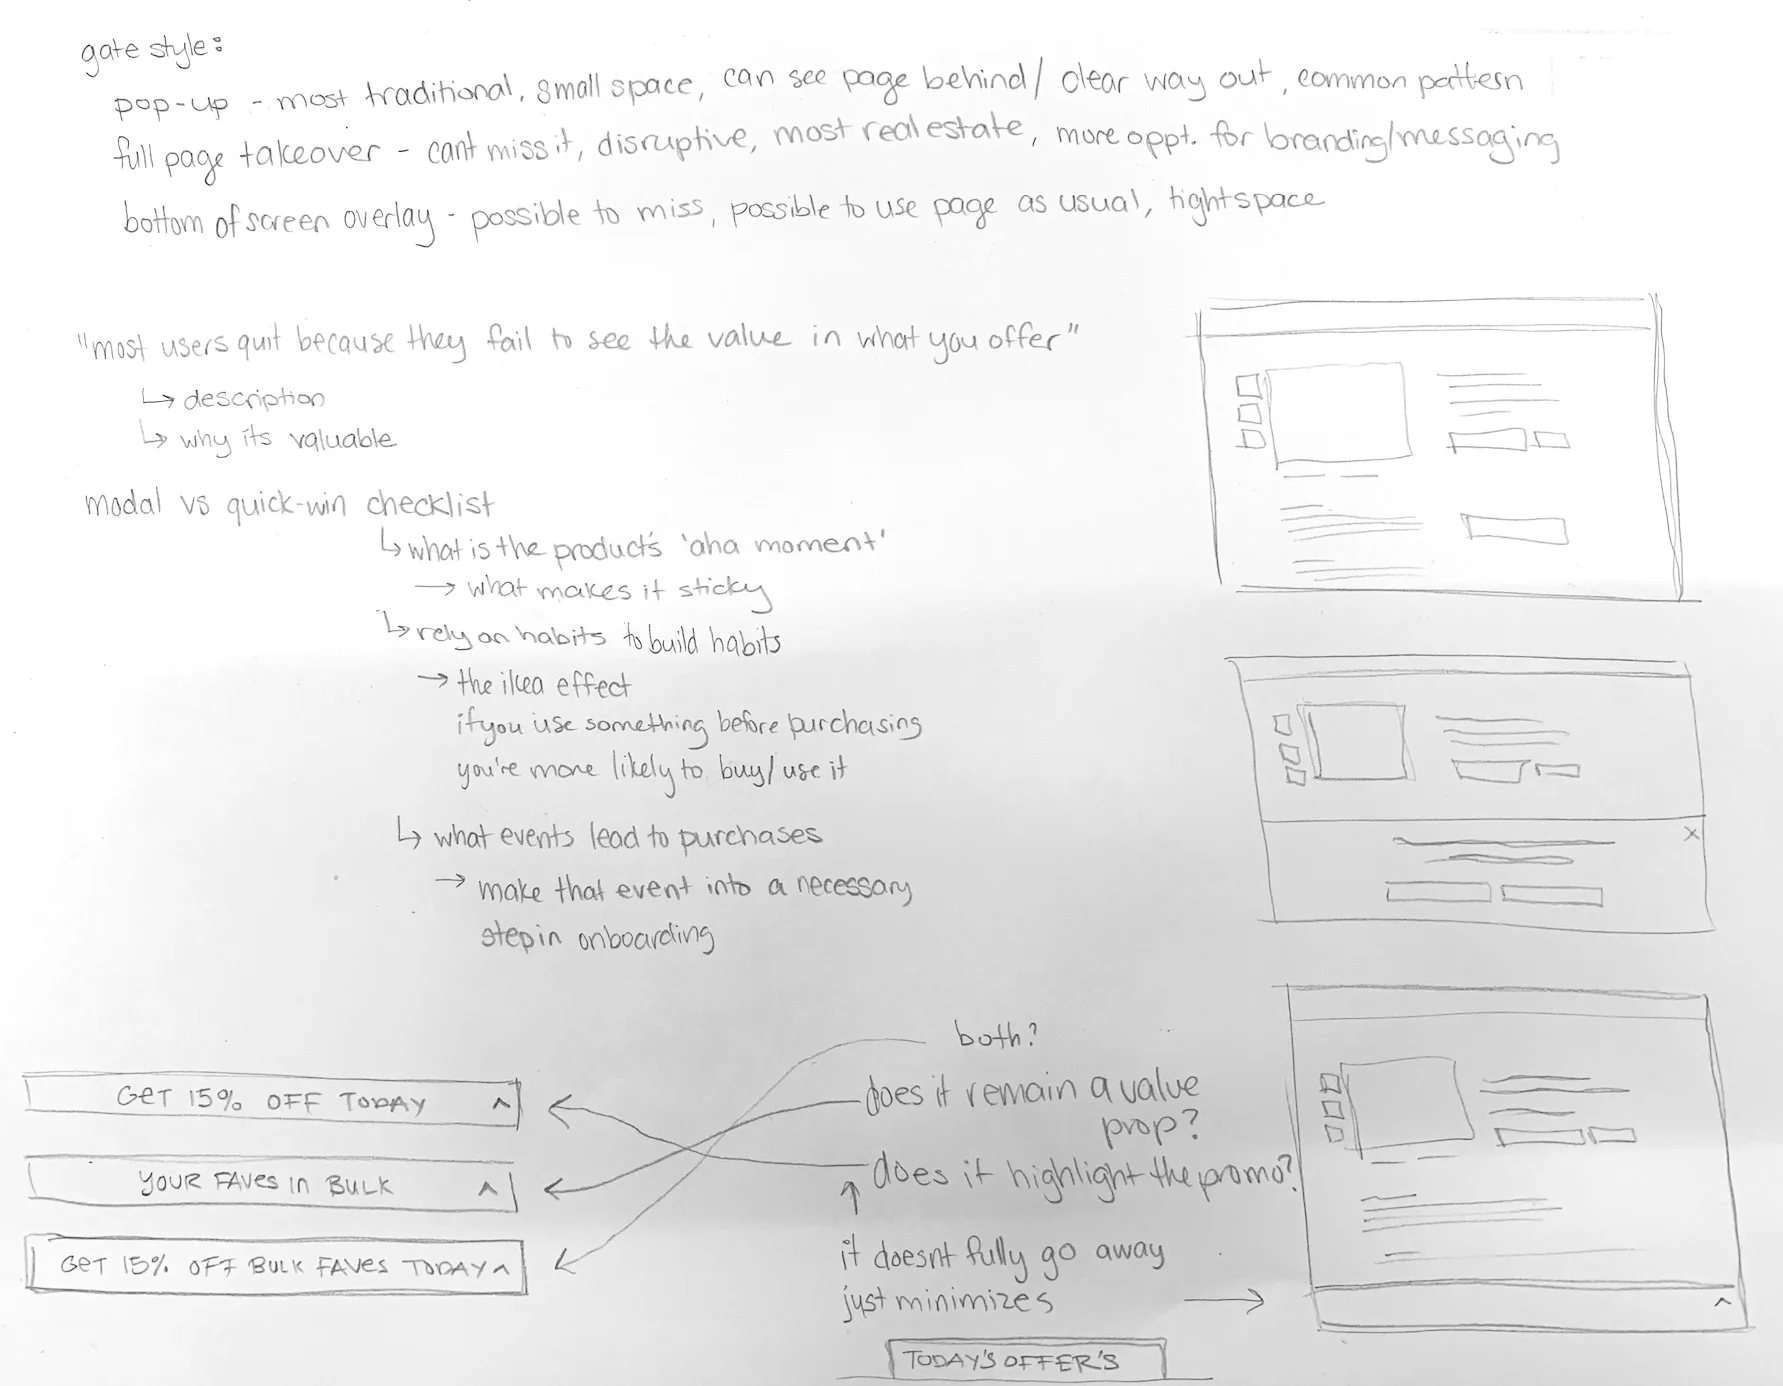 gate style:
pop-up - most traditional, small space, can see page behind/ clear way out, common pattern
full page takeover - cant miss it, disruptive, most real estate, more oppt. for branding/messaging
bottom of screen overlay - possible to miss, possible to use page as usual, tight space
"most users quit because they fail to see the value in what you offer"
↳ description
↳ why its valuable
modal vs quick-win checklist
↳ what is the product's 'aha moment'
→ what makes it sticky
↳ rely on habits to build habits
→ the ikea effect
if you use something before purchasing
you're more likely to buy/use it
↳ what events lead to purchases
→ make that event into a necessary
step in onboarding
X
both?
does it remain a value
prop?
does it highlight the promo?
it doesnt fully go away
just minimizes →
TODAY'S OFFER'S
GET 15% OFF TODAY ^
YOUR FAVES IN BULK ^
GET 15% OFF BULK FAVES TODAY ^
^